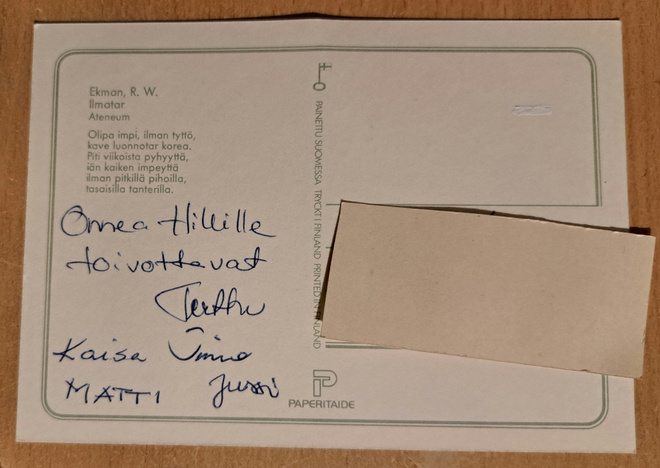 Ekman, R. W.
Ilmatar
Ateneum
Olipa impi, ilman tyttö,
kave luonnotar korea.
Piti viikoista pyhyyttä,
iän kaiken impeyttä
ilman pitkillä pihoilla,
tasaisilla tanterilla.
Onnea Hillille
toivottavat
Terttu
Kaisa
MATTI Jussi
PAINETTU SUOMESSA TRYCKT I FINLAND PRINTED IN FINLAND
PAPERITAIDE